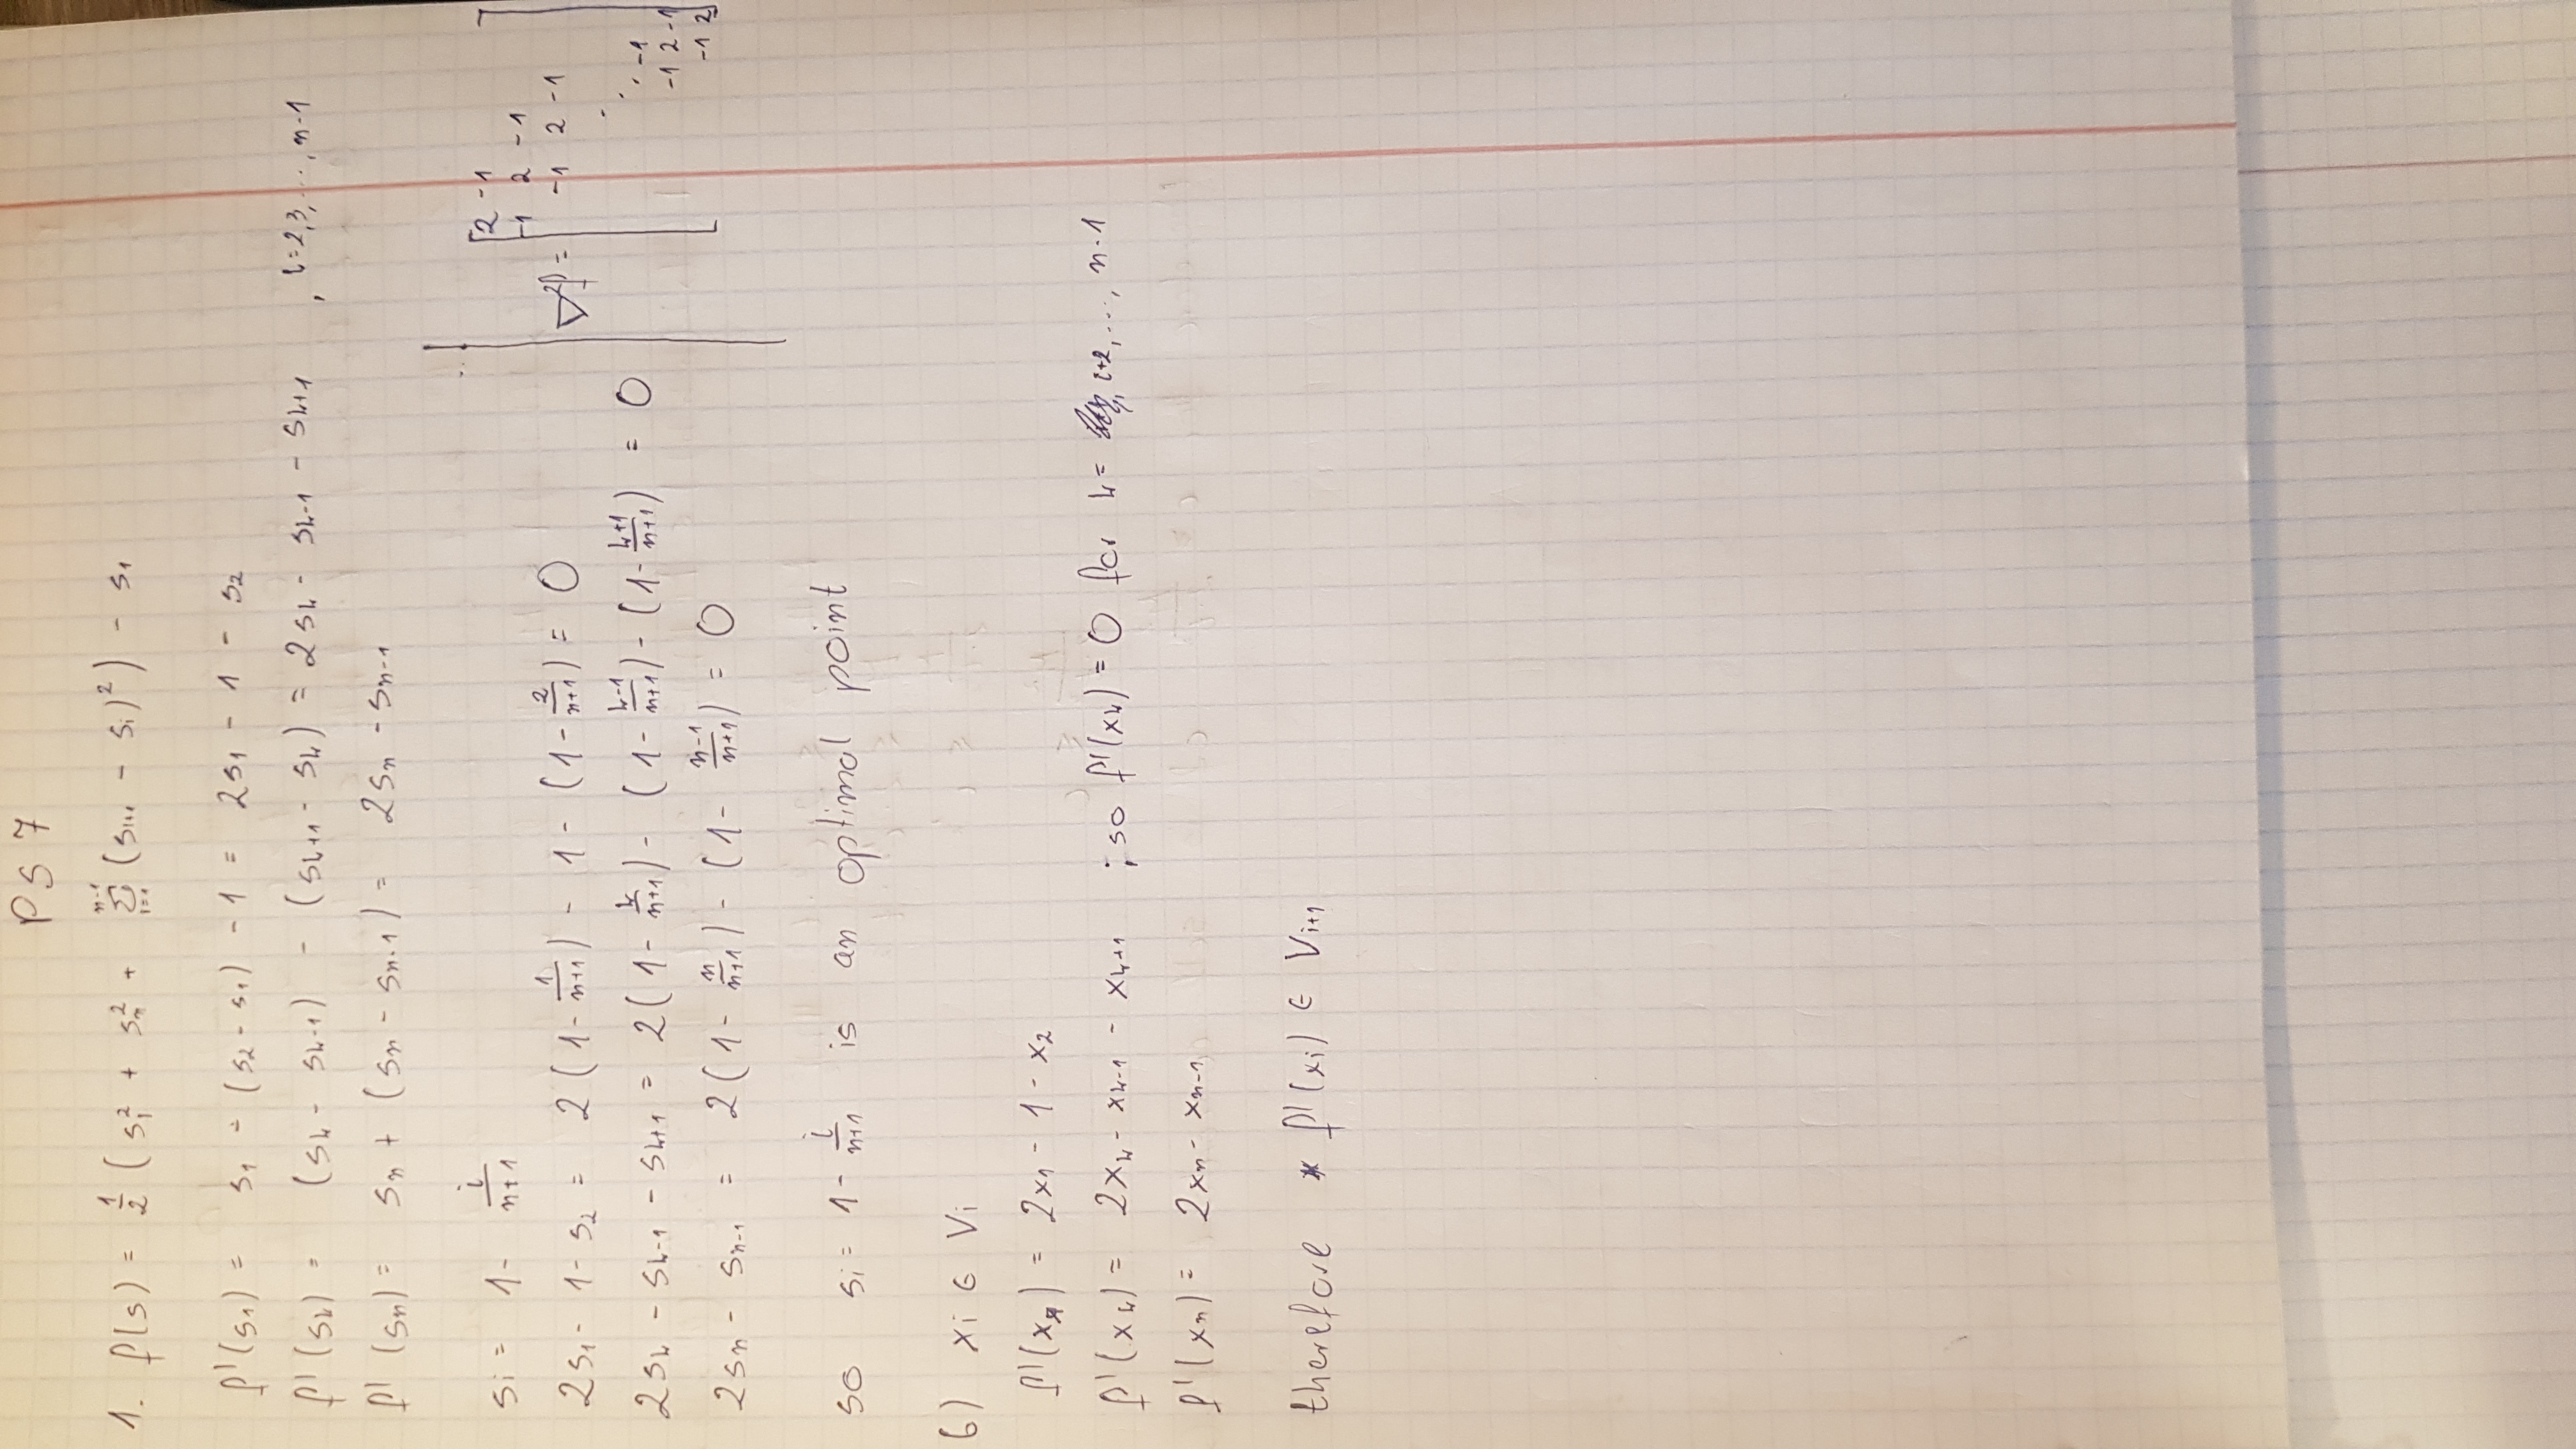 PS 7
1. f(s) = 1/2 ( s₁² + sₙ² + Σᵢ₌₁ⁿ⁻¹ (sᵢ₊₁ - sᵢ)² ) - s₁
f'(s₁) = s₁ - (s₂ - s₁) - 1 = 2s₁ - 1 - s₂
f'(sₖ) = (sₖ - sₖ₋₁) - (sₖ₊₁ - sₖ) = 2sₖ - sₖ₋₁ - sₖ₊₁ , k=2,3,...,n-1
f'(sₙ) = sₙ + (sₙ - sₙ₋₁) = 2sₙ - sₙ₋₁
sᵢ = 1 - i/(n+1)
2s₁ - 1 - s₂ = 2(1 - 1/(n+1)) - 1 - (1 - 2/(n+1)) = 0
2sₖ - sₖ₋₁ - sₖ₊₁ = 2(1 - k/(n+1)) - (1 - (k-1)/(n+1)) - (1 - (k+1)/(n+1)) = 0
2sₙ - sₙ₋₁ = 2(1 - n/(n+1)) - (1 - (n-1)/(n+1)) = 0
∇²f =
2 -1
-1 2 -1
-1 2 -1
. . . -1
-1 2 -1
-1 2
so sᵢ = 1 - i/(n+1) is an optimal point
6) xᵢ ∈ Vᵢ
f'(x₁) = 2x₁ - 1 - x₂
f'(xₖ) = 2xₖ - xₖ₋₁ - xₖ₊₁ ; so f'(xₖ) = 0 for k = i+2, ..., n-1
f'(xₙ) = 2xₙ - xₙ₋₁
therefore f'(xᵢ) ∈ Vᵢ₊₁